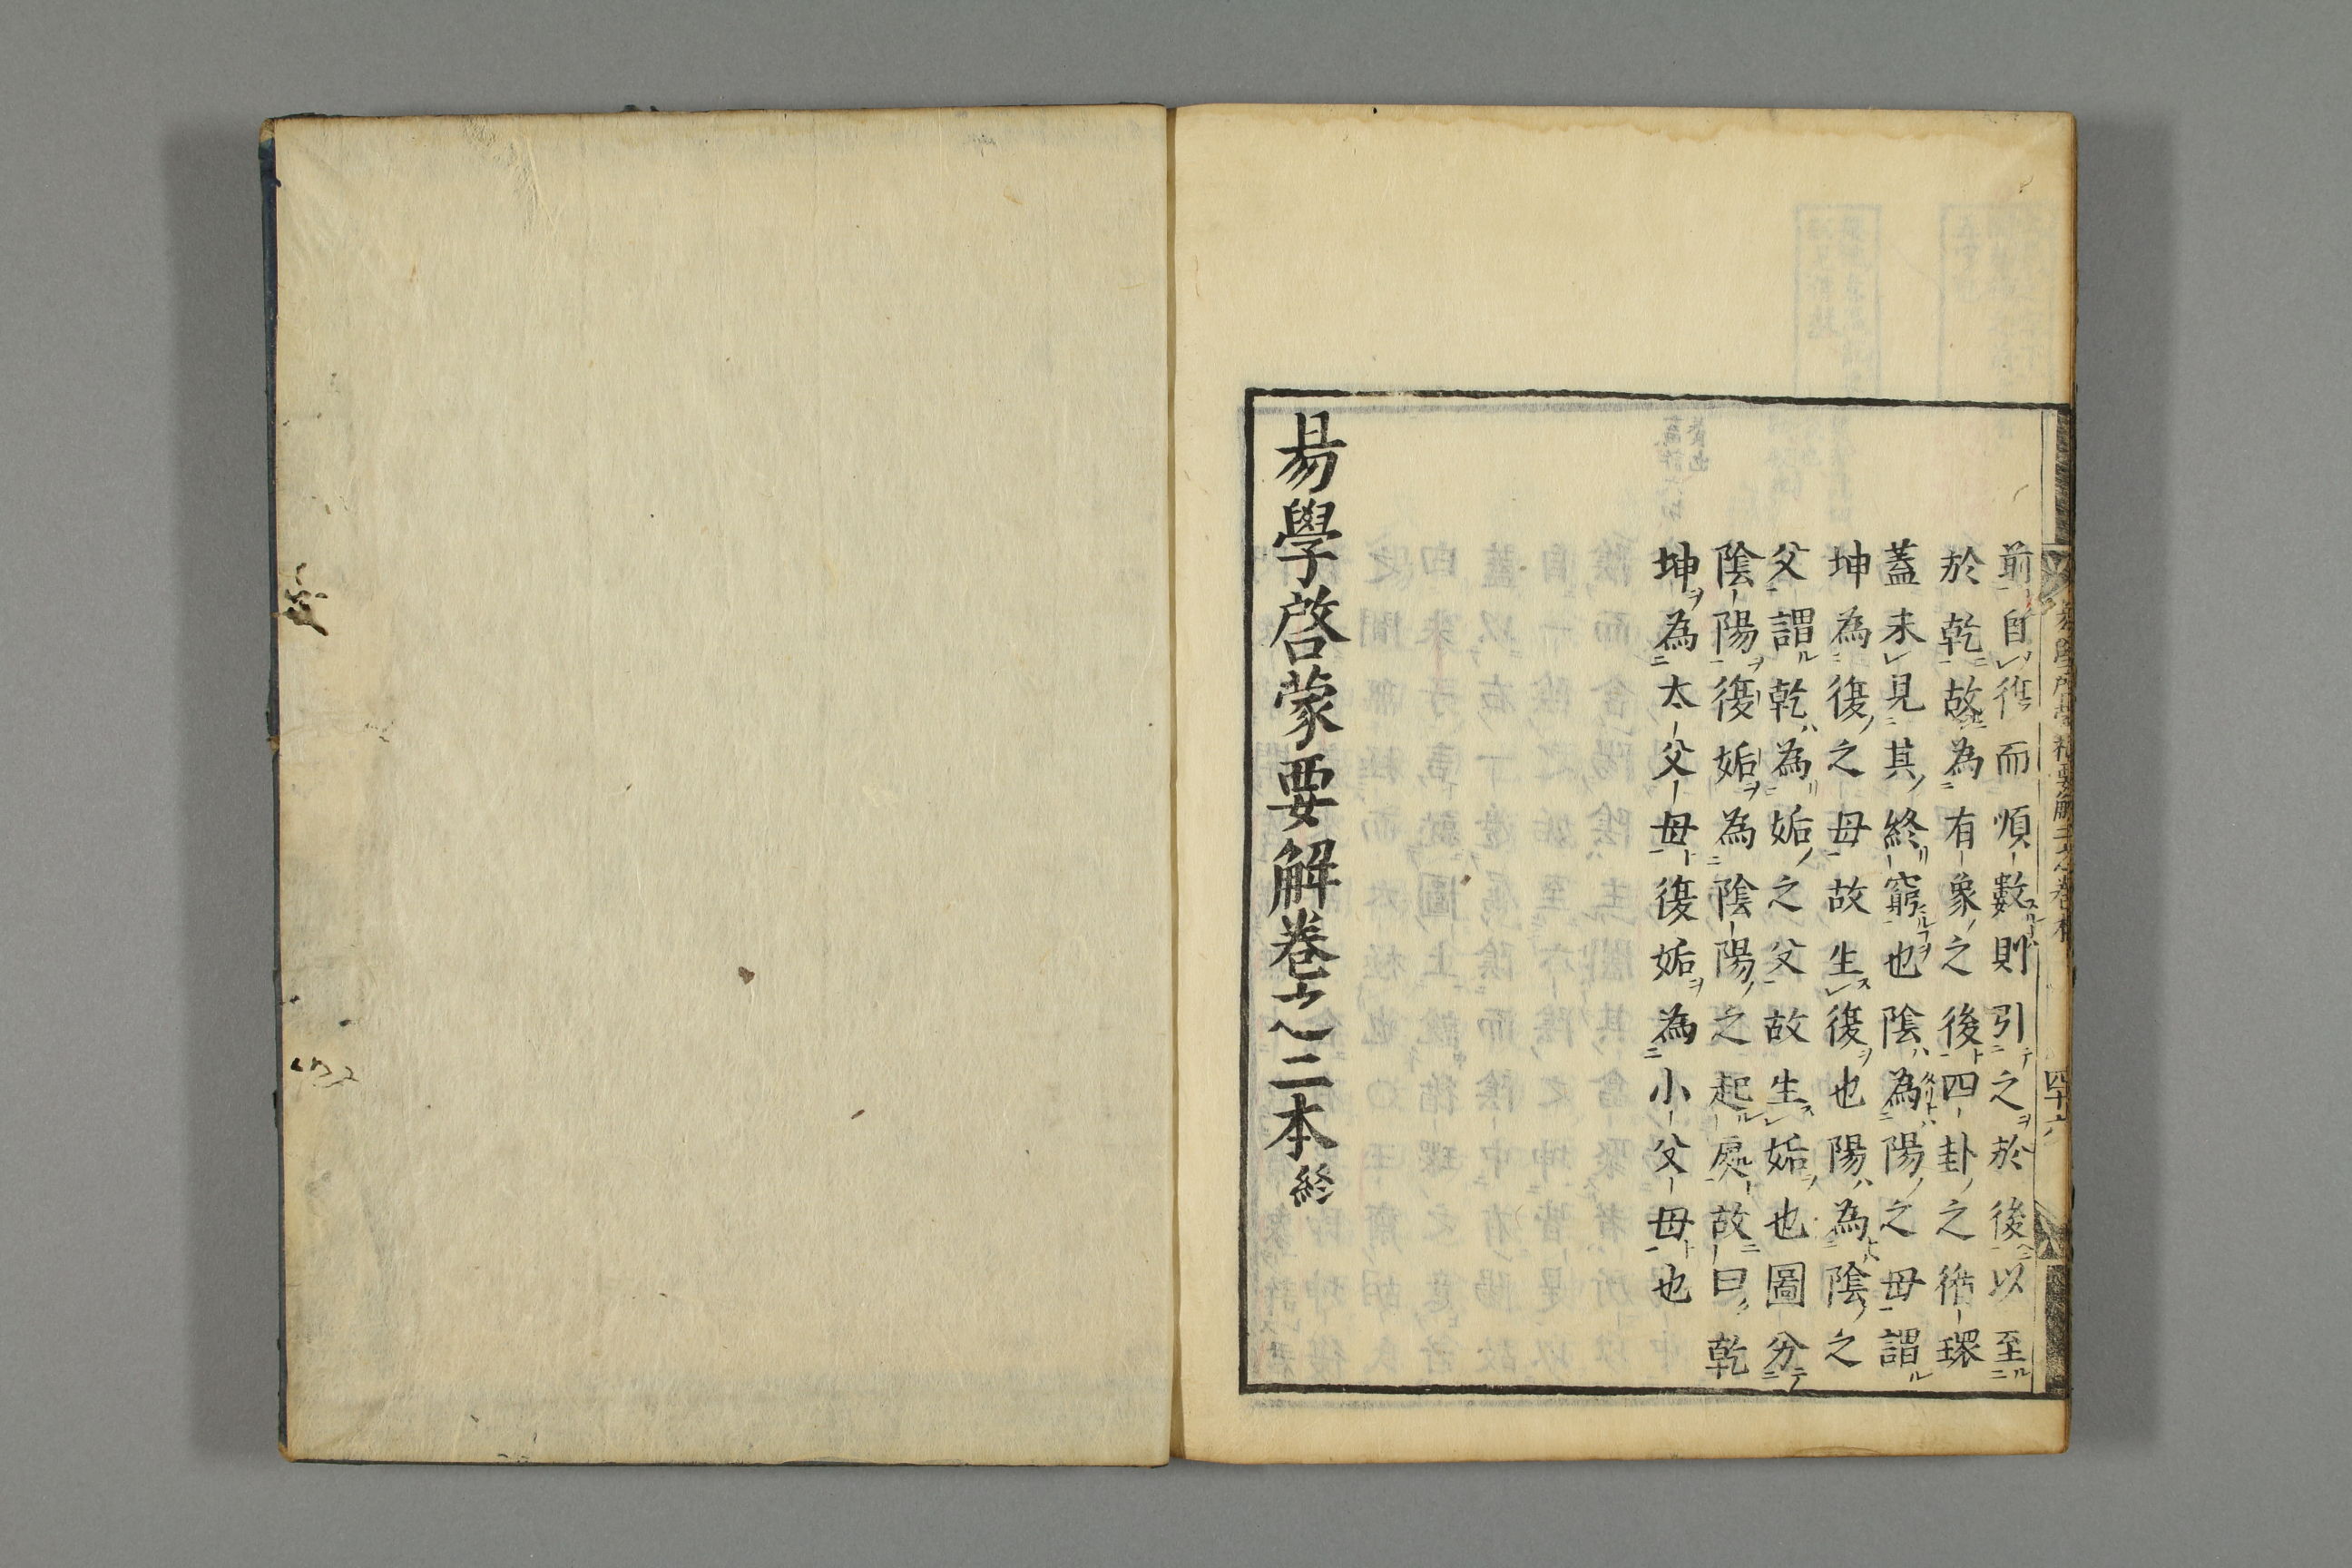 前自復而順數則引之於後以至
於乾故為有象之後四卦之循環
蓋未見其終窮也陰為陽之母謂
坤為復之母故生復也陽為陰之
父謂乾為姤之父故生姤也圖分
陰陽復姤為陰陽之起處故曰乾
坤為太父母復姤為小父母也
易學啓蒙要解卷之二本終
四十六